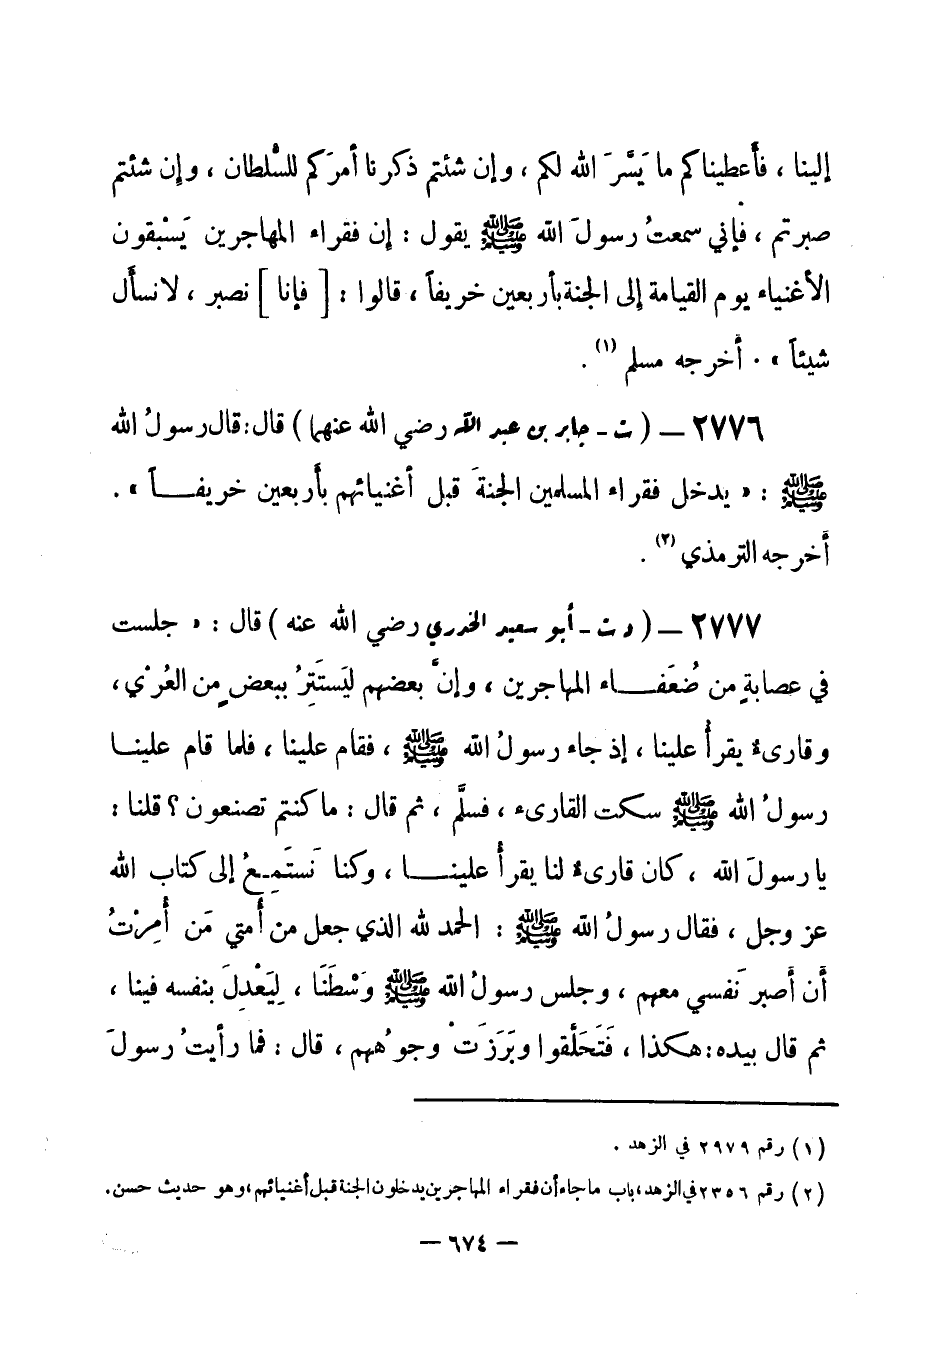 إلينا ، فأَعطيناكم ما يَسَّرَ الله لكم ، وإن شئتم ذكرنا أمرَكم للسُّلطان ، وإن شئتم
صبرتم ، فإني سمعتُ رسولَ الله ﷺ يقول : إن فقراء المهاجرين يَسْبقون
الأغنياء يوم القيامة إلى الجنة بأربعين خريفاً ، قالوا : [ فإنا ] نصبر ، لا نسأَل
شيئاً » . أخرجه مسلم (١) .
٢٧٧٦ – ( ت - جابر بن عبد الله رضي الله عنهما ) قال : قال رسولُ الله
ﷺ : « يدخل فقراء المسلمين الجنةَ قبل أغنيائهم بأَربعين خريفــاً » .
أخرجه الترمذي (٢) .
٢٧٧٧ – ( د ت - أبو سعيد الخدري رضي الله عنه ) قال : « جلست
في عصابةٍ من ضُعَفــاء المهاجرين ، وإنَّ بعضهم ليَستَتِرُ ببعضٍ من العُرْي ،
وقارىءٌ يقرأُ علينا ، إذ جاء رسولُ الله ﷺ ، فقام علينا ، فلما قام علينــا
رسولُ الله ﷺ سكت القارىء ، فسلَّم ، ثم قال : ما كنتم تصنعون ؟ قلنا :
يا رسولَ الله ، كان قارىءٌ لنا يقرأُ علينــا ، وكنا نَستَمِعُ إلى كتاب الله
عز وجل ، فقال رسولُ الله ﷺ : الحمد لله الذي جعل من أُمتي مَن أُمِرْتُ
أن أصبر نَفسي معهم ، وجلس رسولُ الله ﷺ وَسْطَنَا ، لِيَعْدِلَ بنفسه فينا ،
ثم قال بيده : هكذا ، فَتَحَلَّقوا وبَرَزَتْ وجوُههم ، قال : فما رأيتُ رسولَ
(١) رقم ٢٩٧٩ في الزهد .
(٢) رقم ٢٣٥٦ في الزهد ، باب ما جاء أن فقراء المهاجرين يدخلون الجنة قبل أغنيائهم ، وهو حديث حسن .
– ٦٧٤ –